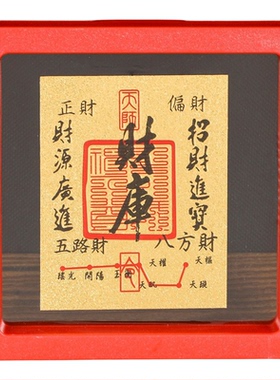 天師
正財
偏財
招財進寶
財庫
財源廣進
五路財
八方財
瑤光
開陽
玉衡
天權
天璣
天樞
天璇